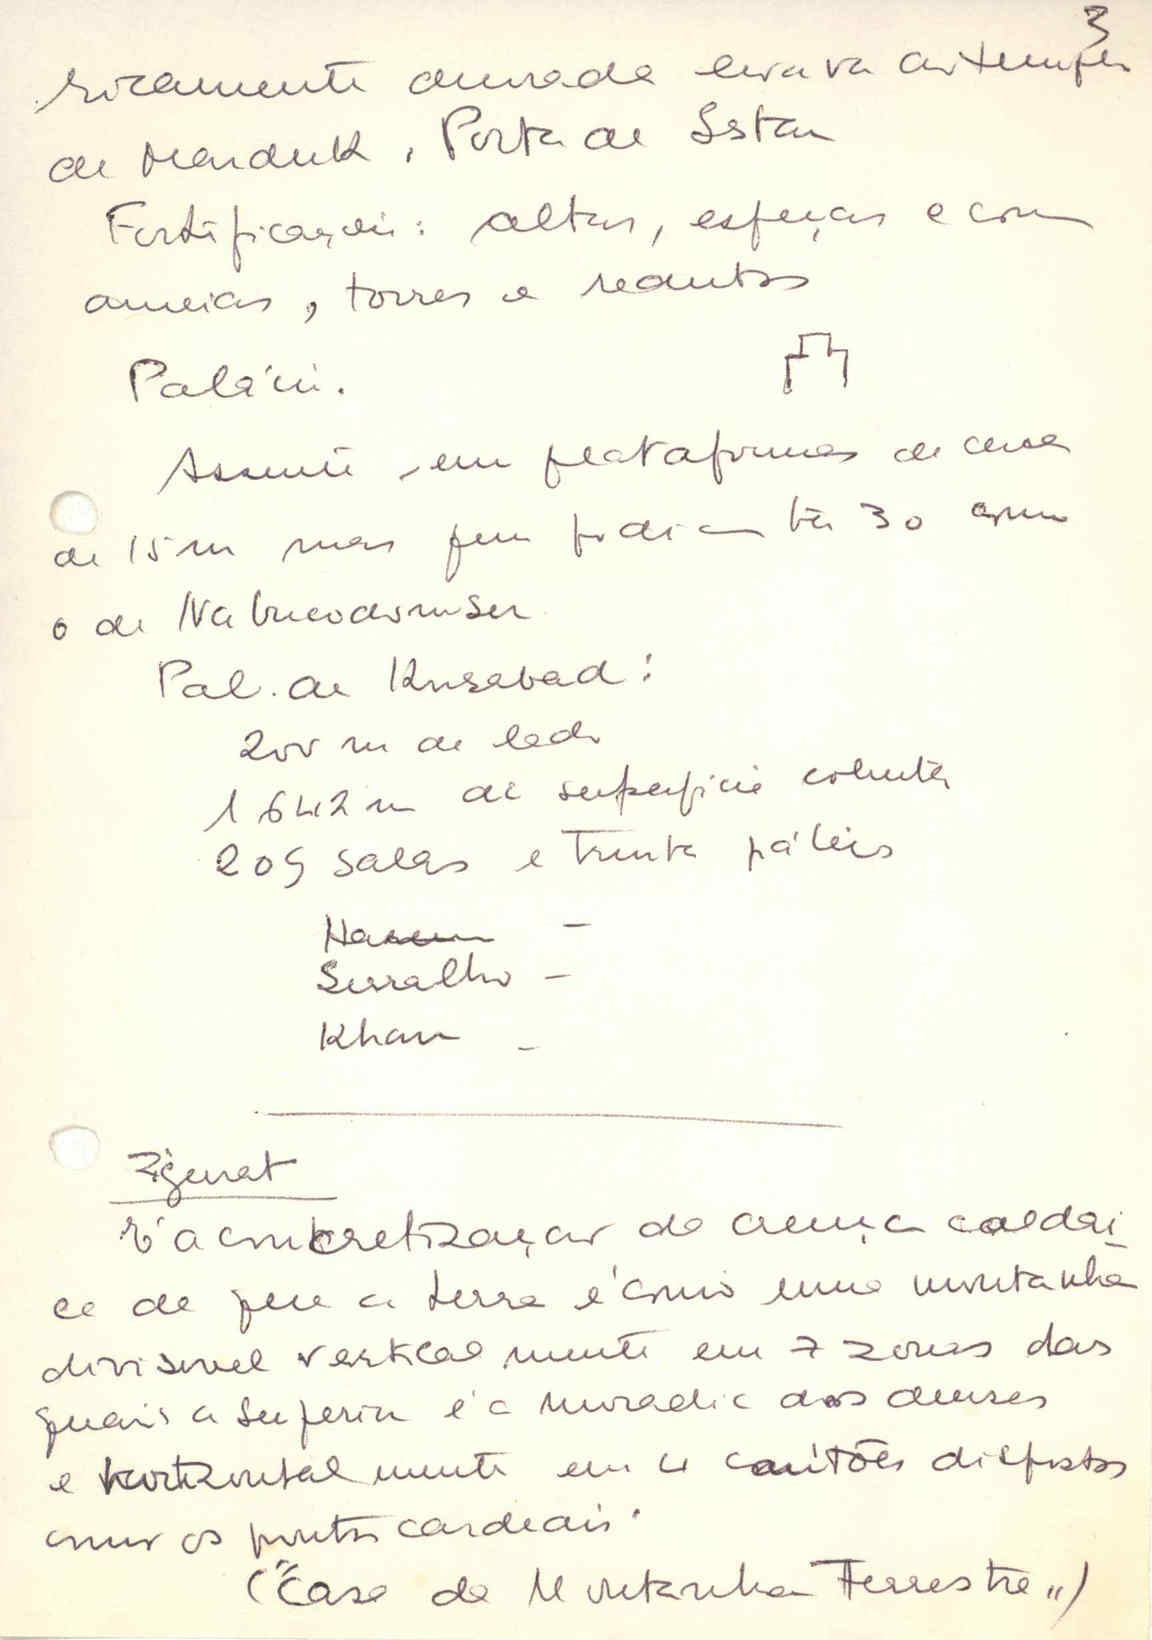 3
ricamente ornada levava ao templo
de Marduk, Porta de Istar
Fortificações: altas, espessas e com
ameias, torres e redutos
Palácio.
Assente em plataformas de cerca
de 15 m mas que podiam ter 30 como
o de Nabucodonosor
Pal. de Khorsabad:
200 m de lado
1642 m de superfície coberta
209 salas e trinta pátios
Harem -
Serralho -
Khan -
Zigurat
É a concretização da crença caldai
ca de que a terra é como uma montanha
divisível verticalmente em 7 zonas das
quais a superior é a moradia dos deuses
e horizontalmente em 4 cantões dispostos
como os pontos cardeais.
("Casa da Montanha Terrestre")